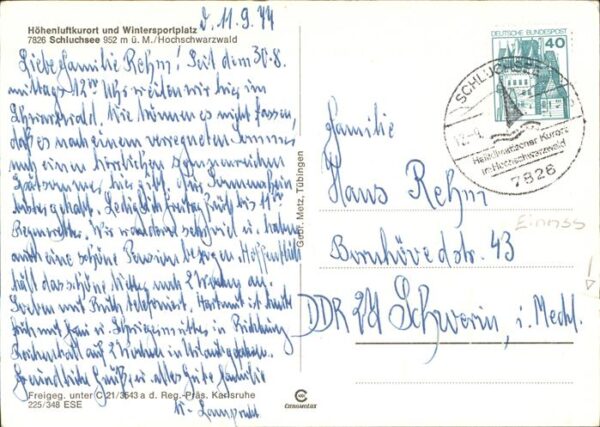 d. 11.9.77
Höhenluftkurort und Wintersportplatz
7826 Schluchsee 952 m ü. M./Hochschwarzwald
Liebe Familie Rehm! Seit dem 30.8.
mittags 12⁰⁰ Uhr weilen wir hier im
Schwarzwald. Wir können es nicht fassen,
daß es nach einem verregneten Sommer
noch einen herrlichen sonnenreichen
Spätsommer hier gibt. Sonnenschein
Regenwetter. Wir wandern sehr viel u. haben
auch eine schöne Pension bezogen. Hoffentlich
hält das schöne Wetter noch 2 Wochen an.
Soeben mit Ruth telefoniert. Hartmut ist heute
früh mit in Richtung
auf 2 Wochen in Urlaub gefahren.
Freundliche Grüße u. alles Gute Familie
K. Lamprecht
Freigeg. unter C 21/3543 a d. Reg.-Präs. Karlsruhe
225/348 ESE
Gebr. Metz, Tübingen
CHROMOLUX
DEUTSCHE BUNDESPOST
40
SCHLUCHSEE
Heilklimatischer Kurort
im Hochschwarzwald
7826
Familie
Hans Rehm
Bornhövedstr. 43
DDR 27 Schwerin, i. Meckl.